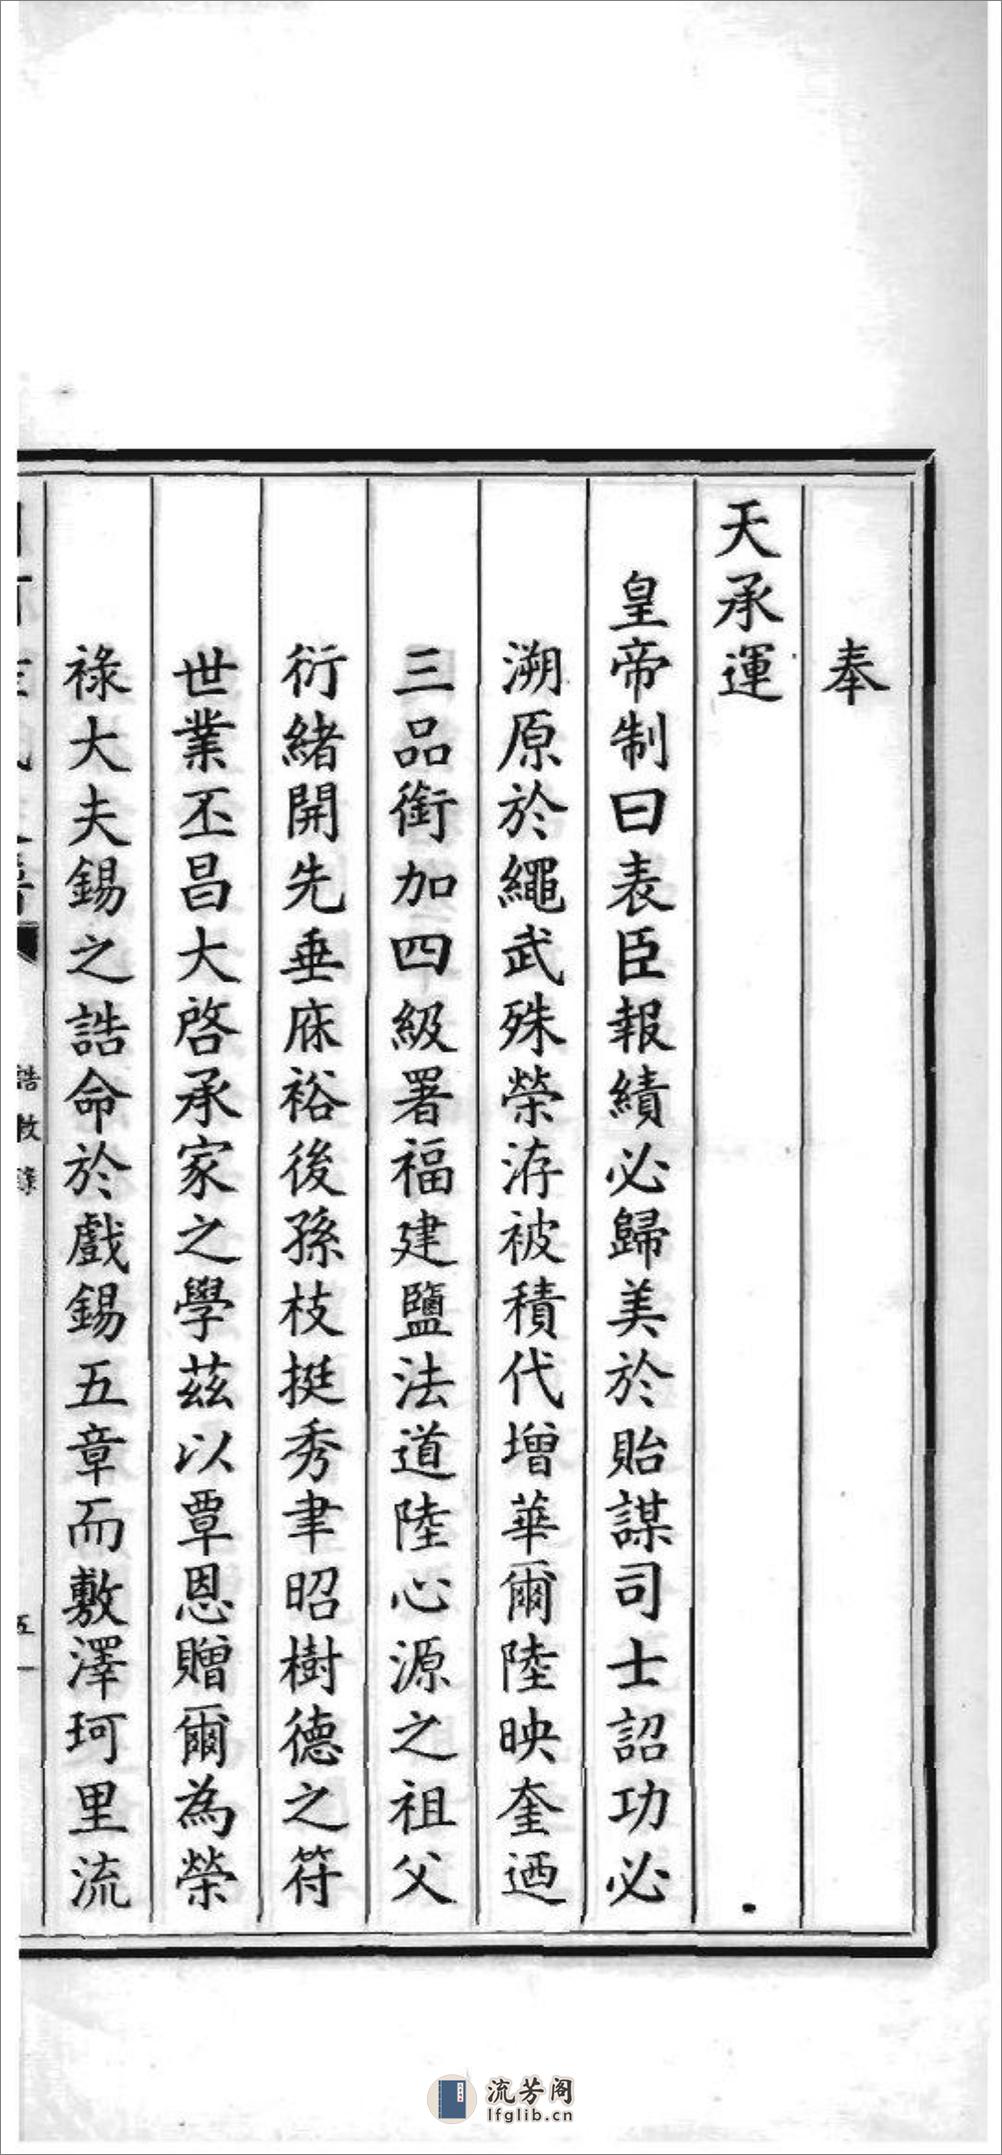 奉
天承運
皇帝制曰表臣報績必歸美於貽謀司士詔功必
溯原於繩武殊榮洊被積代增華爾陸映奎迺
三品銜加四級署福建鹽法道陸心源之祖父
衍緒開先垂庥裕後孫枝挺秀聿昭樹德之符
世業丕昌大啓承家之學茲以覃恩贈爾為榮
祿大夫錫之誥命於戲錫五章而敷澤珂里流
流芳阁
lfglib.cn